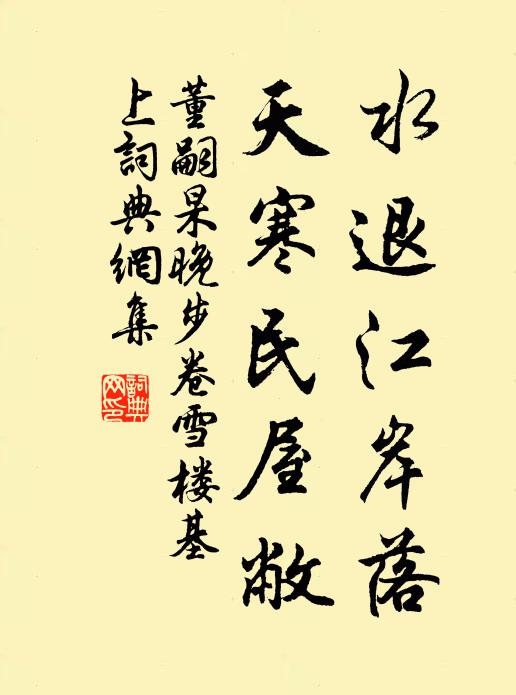 水退江岸落
天寒民屋敝
董嗣杲晚步卷雪楼基
上詞典網集
詞典
网印